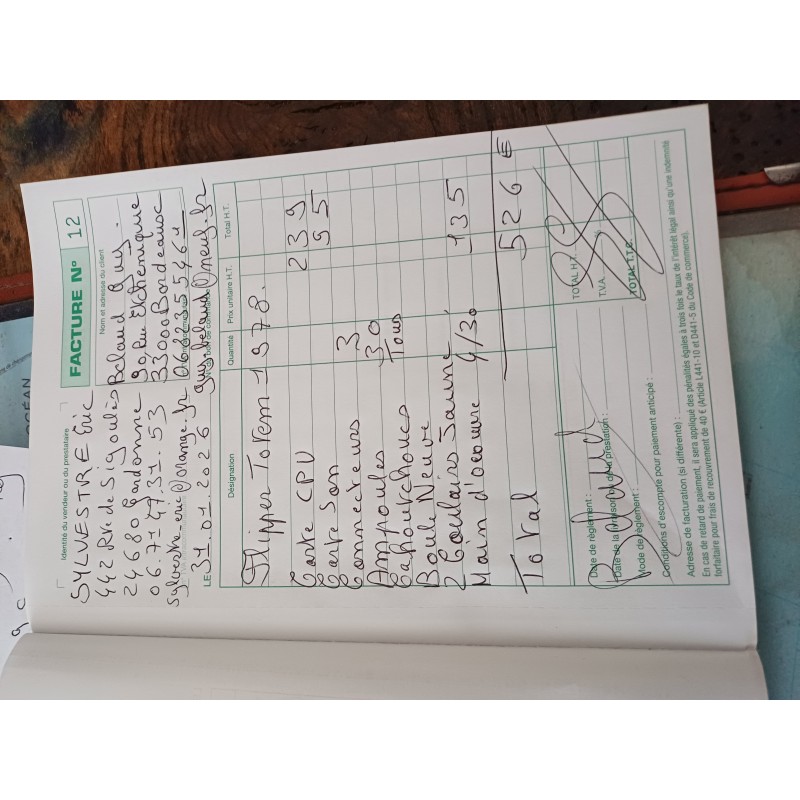 FACTURE N° 12
Identité du vendeur ou du prestataire
SYLVESTRE Eric
442 Rte de Sigoulès
24680 Gardonne
06.71.47.31.53
sylvestre-eric@orange.fr
LE 31.01.2026
Nom et adresse du client
Beland Guy.
33000 Bordeaux
0682355464
guy.beland@neuf.fr
Désignation Quantité Prix unitaire H.T. Total H.T.
Flipper Totem 1978.
Carte CPU 239
Carte Son 95
Connecteurs 3
Ampoules 30
Cahoutchoucs Tous
Boule Neuve
2 Coulairs Jaune
Main d'oeuvre 4/30 135
Total 526 €
Date de règlement :
Date de la livraison ou de la prestation :
Mode de règlement :
Conditions d'escompte pour paiement anticipé :
TOTAL H.T.
T.V.A.
TOTAL T.T.C.
Adresse de facturation (si différente) :
En cas de retard de paiement, il sera appliqué des pénalités égales à trois fois le taux de l'intérêt légal ainsi qu'une indemnité
forfaitaire pour frais de recouvrement de 40 € (Article L441-10 et D441-5 du Code de commerce).
OCÉAN